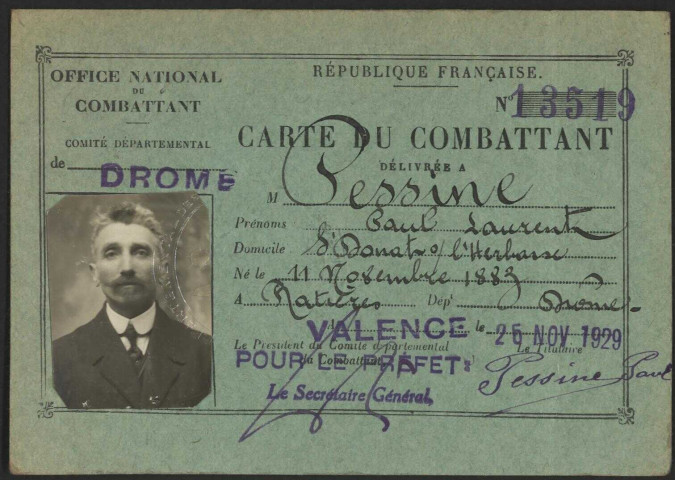 OFFICE NATIONAL
DU
COMBATTANT
COMITÉ DÉPARTEMENTAL
de DROME
RÉPUBLIQUE FRANÇAISE.
N° 13519
CARTE DU COMBATTANT
DÉLIVRÉE A
M Pessine
Prénoms Paul Laurent
Domicile St Donat s/ l'Herbasse
Né le 11 Novembre 1883
A Ratières Dépt Drôme
A VALENCE le 25 NOV 1929
Le Président du Comité départemental
du Combattant
Le Titulaire
POUR LE PRÉFET:
Le Secrétaire Général,
Pessine Paul